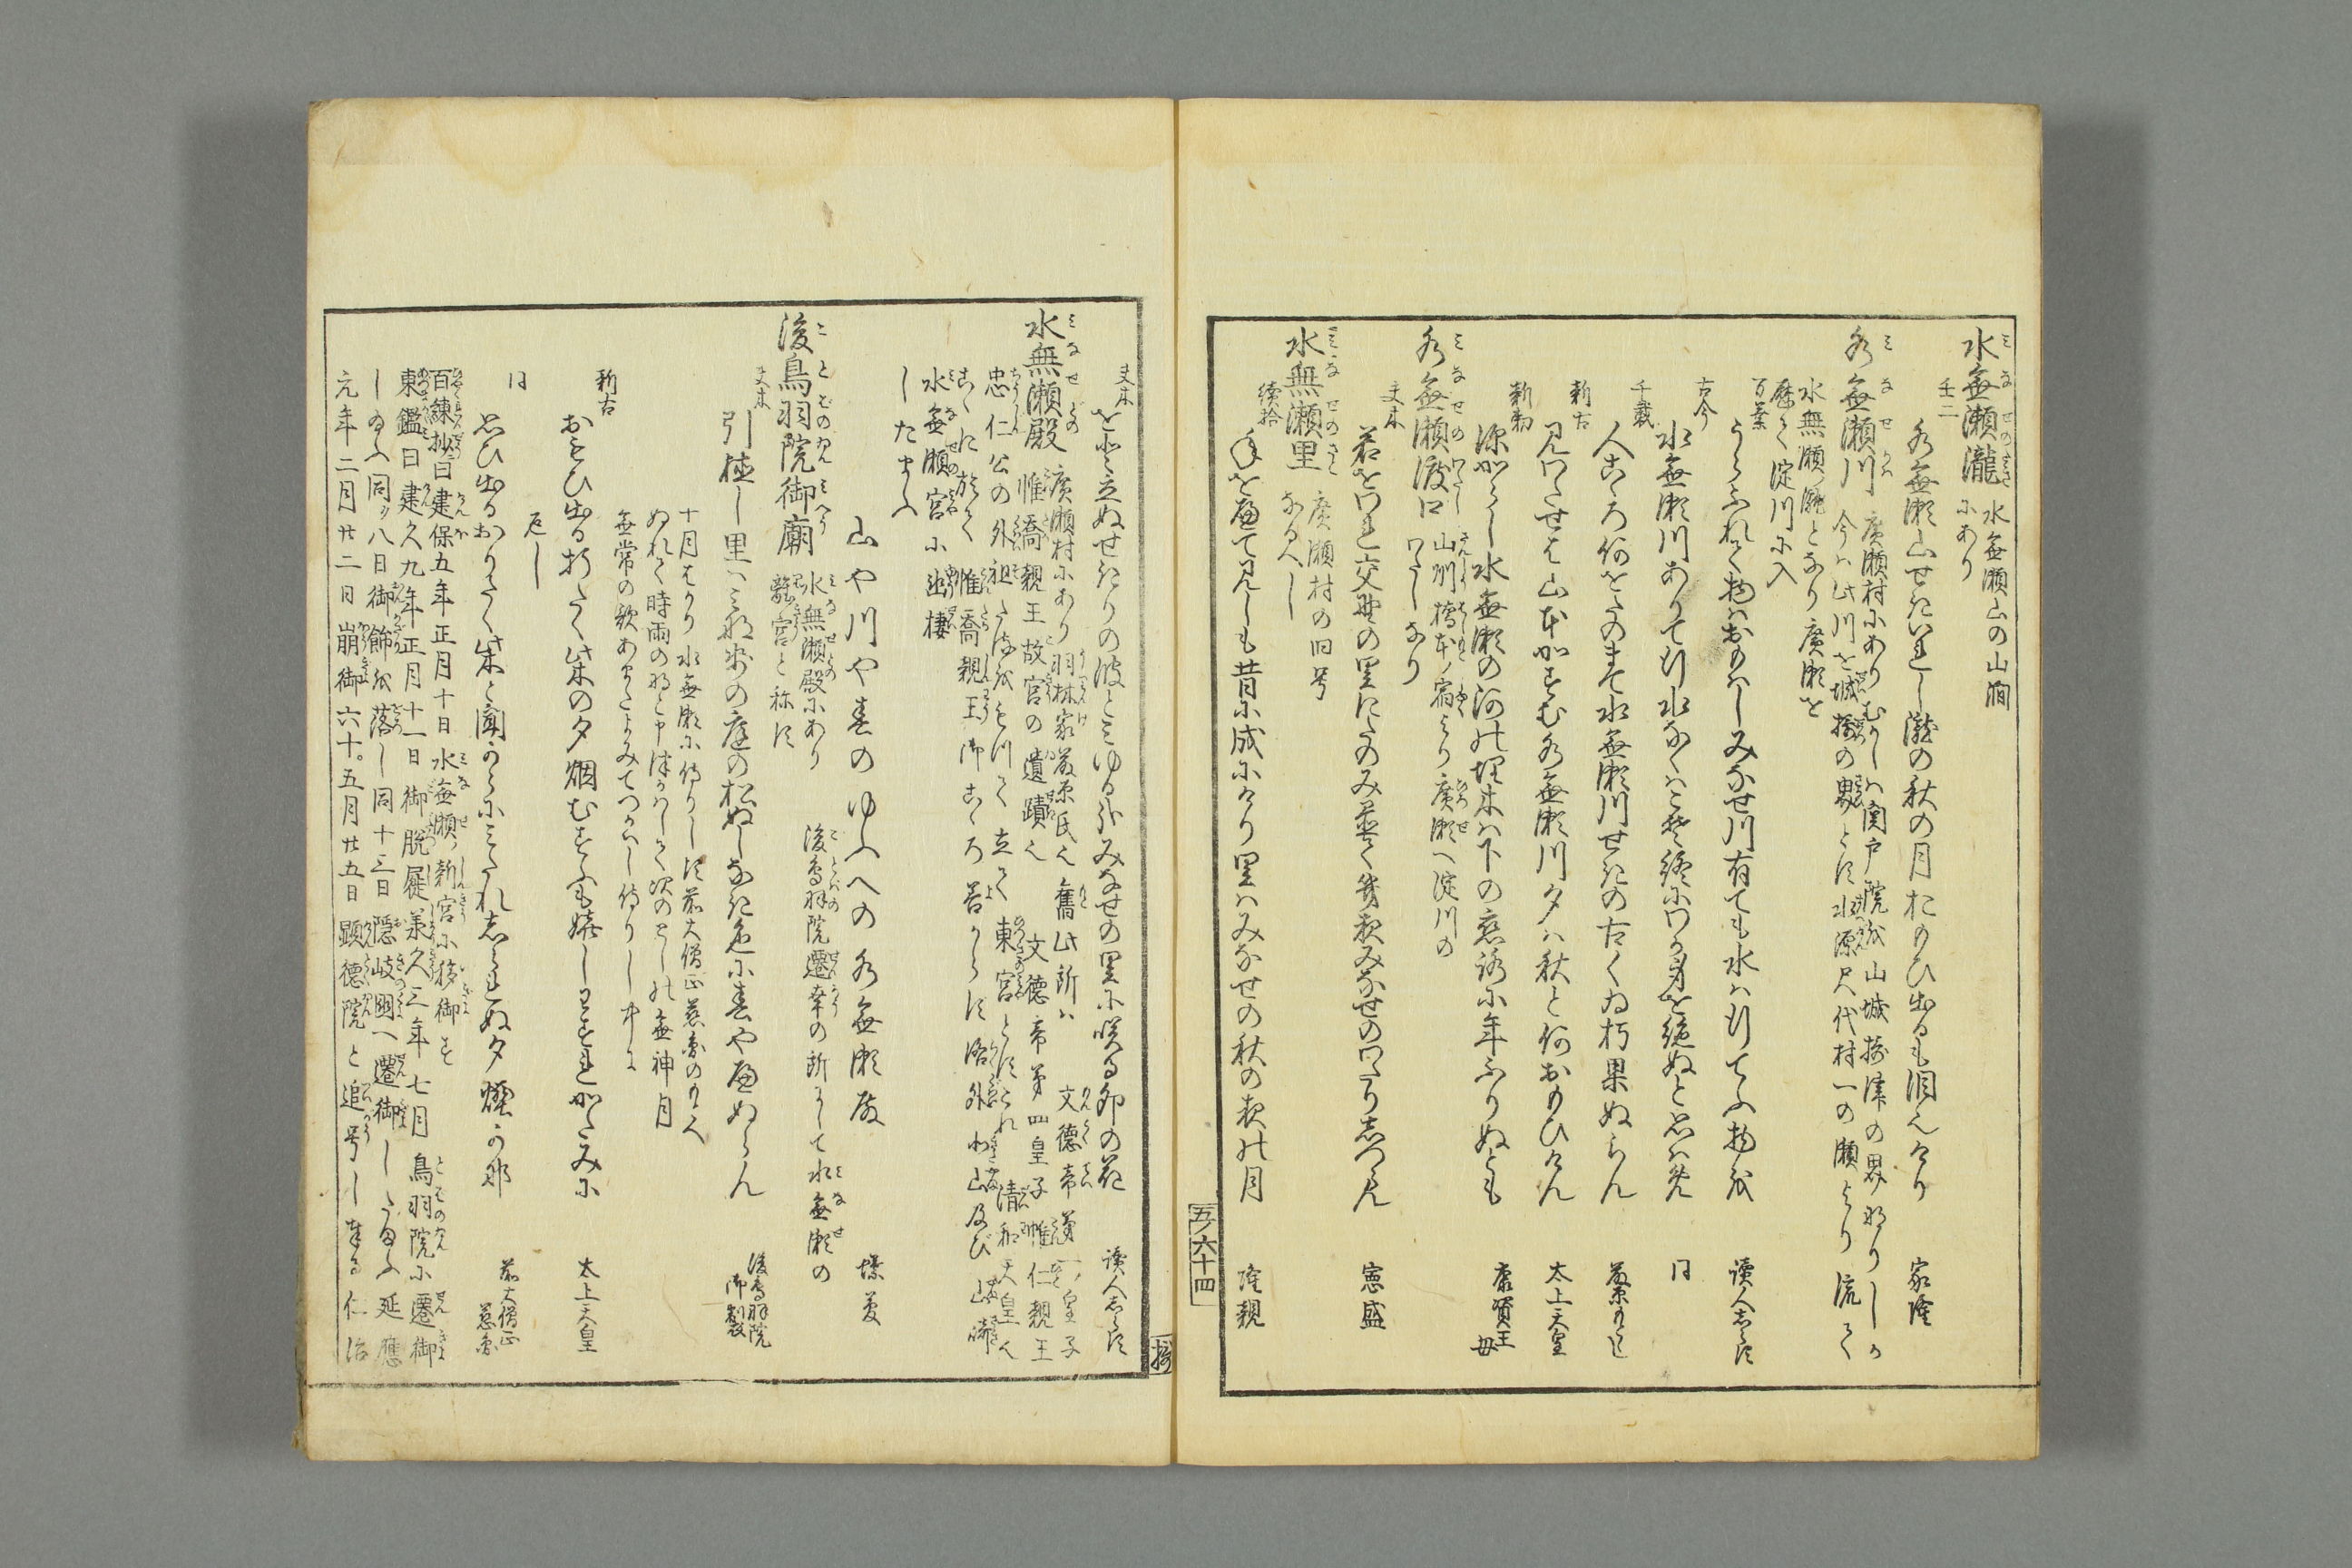 水無瀬瀧 水無瀬山の山澗
にあり
壬二
水無瀬山せき入れし瀧の秋の月おもひ出るも泪也けり 家隆
水無瀬川 廣瀬村にありむかしハ関戸院を山城摂津の界なりしか
今ハ此川を城摂の界とす水源尺代村一の瀬より流て
水無瀬瀧となり廣瀬を
歴て淀川に入
万葉
うらふれて物ハおもハしみなせ川有ても水ハ行てふ物を 読人しらす
古今
水無瀬川ありて行水なくハこそ終にわか身を絶ぬと思ハめ 同
千載
人こゝろ何をたのまて水無瀬川せきの古くゐ朽果ぬらん
新古
見わたせは山本かすむ水無瀬川夕ハ秋と何おもひけん 太上天皇
新勅
深からし水無瀬の河の埋木ハ下の恋路に年ふりぬとも 康資王母
水無瀬渡口 山州橋本ノ宿より廣瀬へ淀川の
わたしなり
夫木
君をわれ交野の里にたのみ置て幾夜みなせのわたりしつらん
水無瀬里 廣瀬村の旧号
なるへし
続拾
手を歴て見しも昔に成にけり里ハみなせの秋の夜の月 隆親
五ノ六十四
夫木
みなせの里に咲る卯の花 読人しらす
水無瀬殿 廣瀬村にあり羽林家藤原氏也旧此所ハ文徳帝第一ノ皇子
惟喬親王故宮の遺蹟也 文徳帝第四皇子惟仁親王
忠仁公の外祖たるを以て立て東宮とすこれ清和天皇也
こゝに於て惟喬親王御こゝろ善からす洛外小山及び山崎
水無瀬宮に幽棲
したまふ
山や川や春のゆふへの水無瀬殿
後鳥羽院御廟 水無瀬殿にあり 後鳥羽院遷幸の所にして水無瀬の
離宮と称す
夫木
引植し里ハみなせの庭の松ぬしなき色に春や歴ぬらん 後鳥羽院御製
十月はかり水無瀬に侍りし比前大僧正慈圓のもとへ
ぬれて時雨のなと申つかハして次のとしの無神月
無常の歌あまたよみてつかハし侍りし中に
新古
おもひ出る折たく柴の夕烟むせふも嬉しわすれかたみに 太上天皇
返し
同
思ひ出るおりたく柴と聞からにたくひしられぬ夕煙かな 前大僧正慈圓
百錬抄曰建保五年正月十日水無瀬ノ新宮に移御す
東鑑曰建久九年正月十一日御脱屣承久三年七月鳥羽院に遷御
し給ふ同八日御餝を落し同十三日隠岐国へ遷御したまふ延應
元年二月廿二日崩御六十。五月廿五日顕徳院と追号し奉る仁治
摂